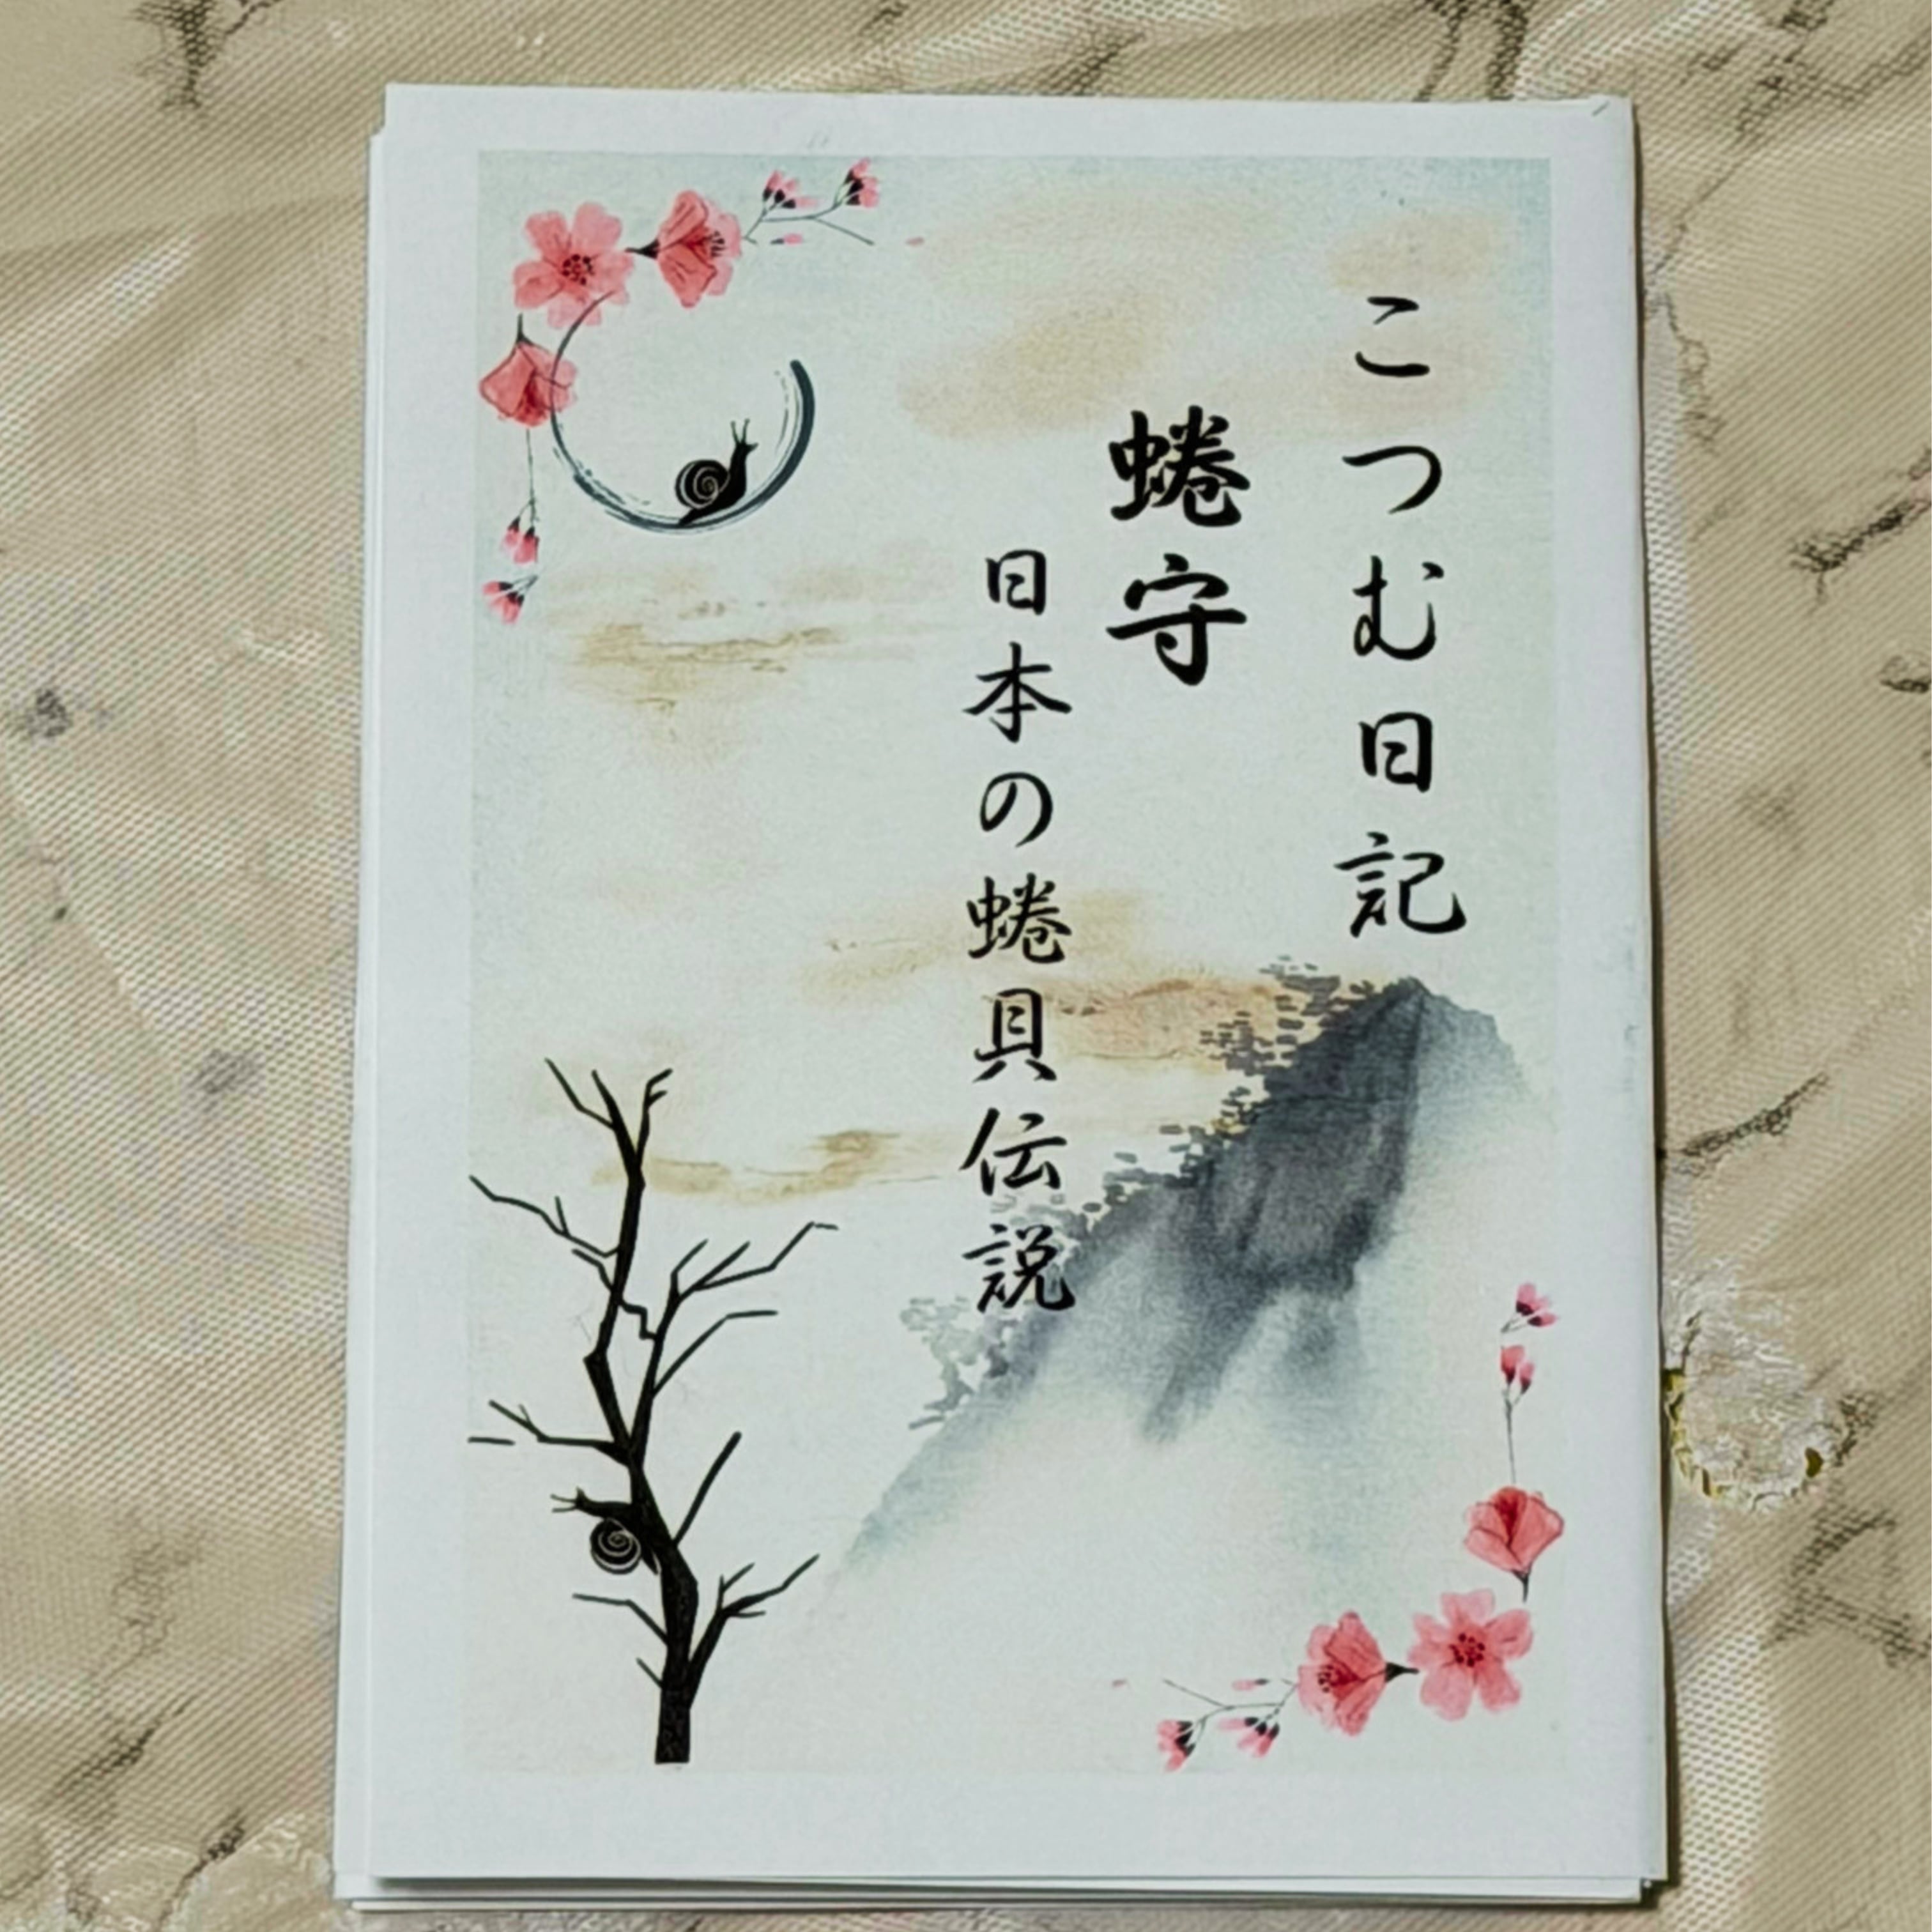 こつむ日記
蜷守
日本の蜷貝伝説